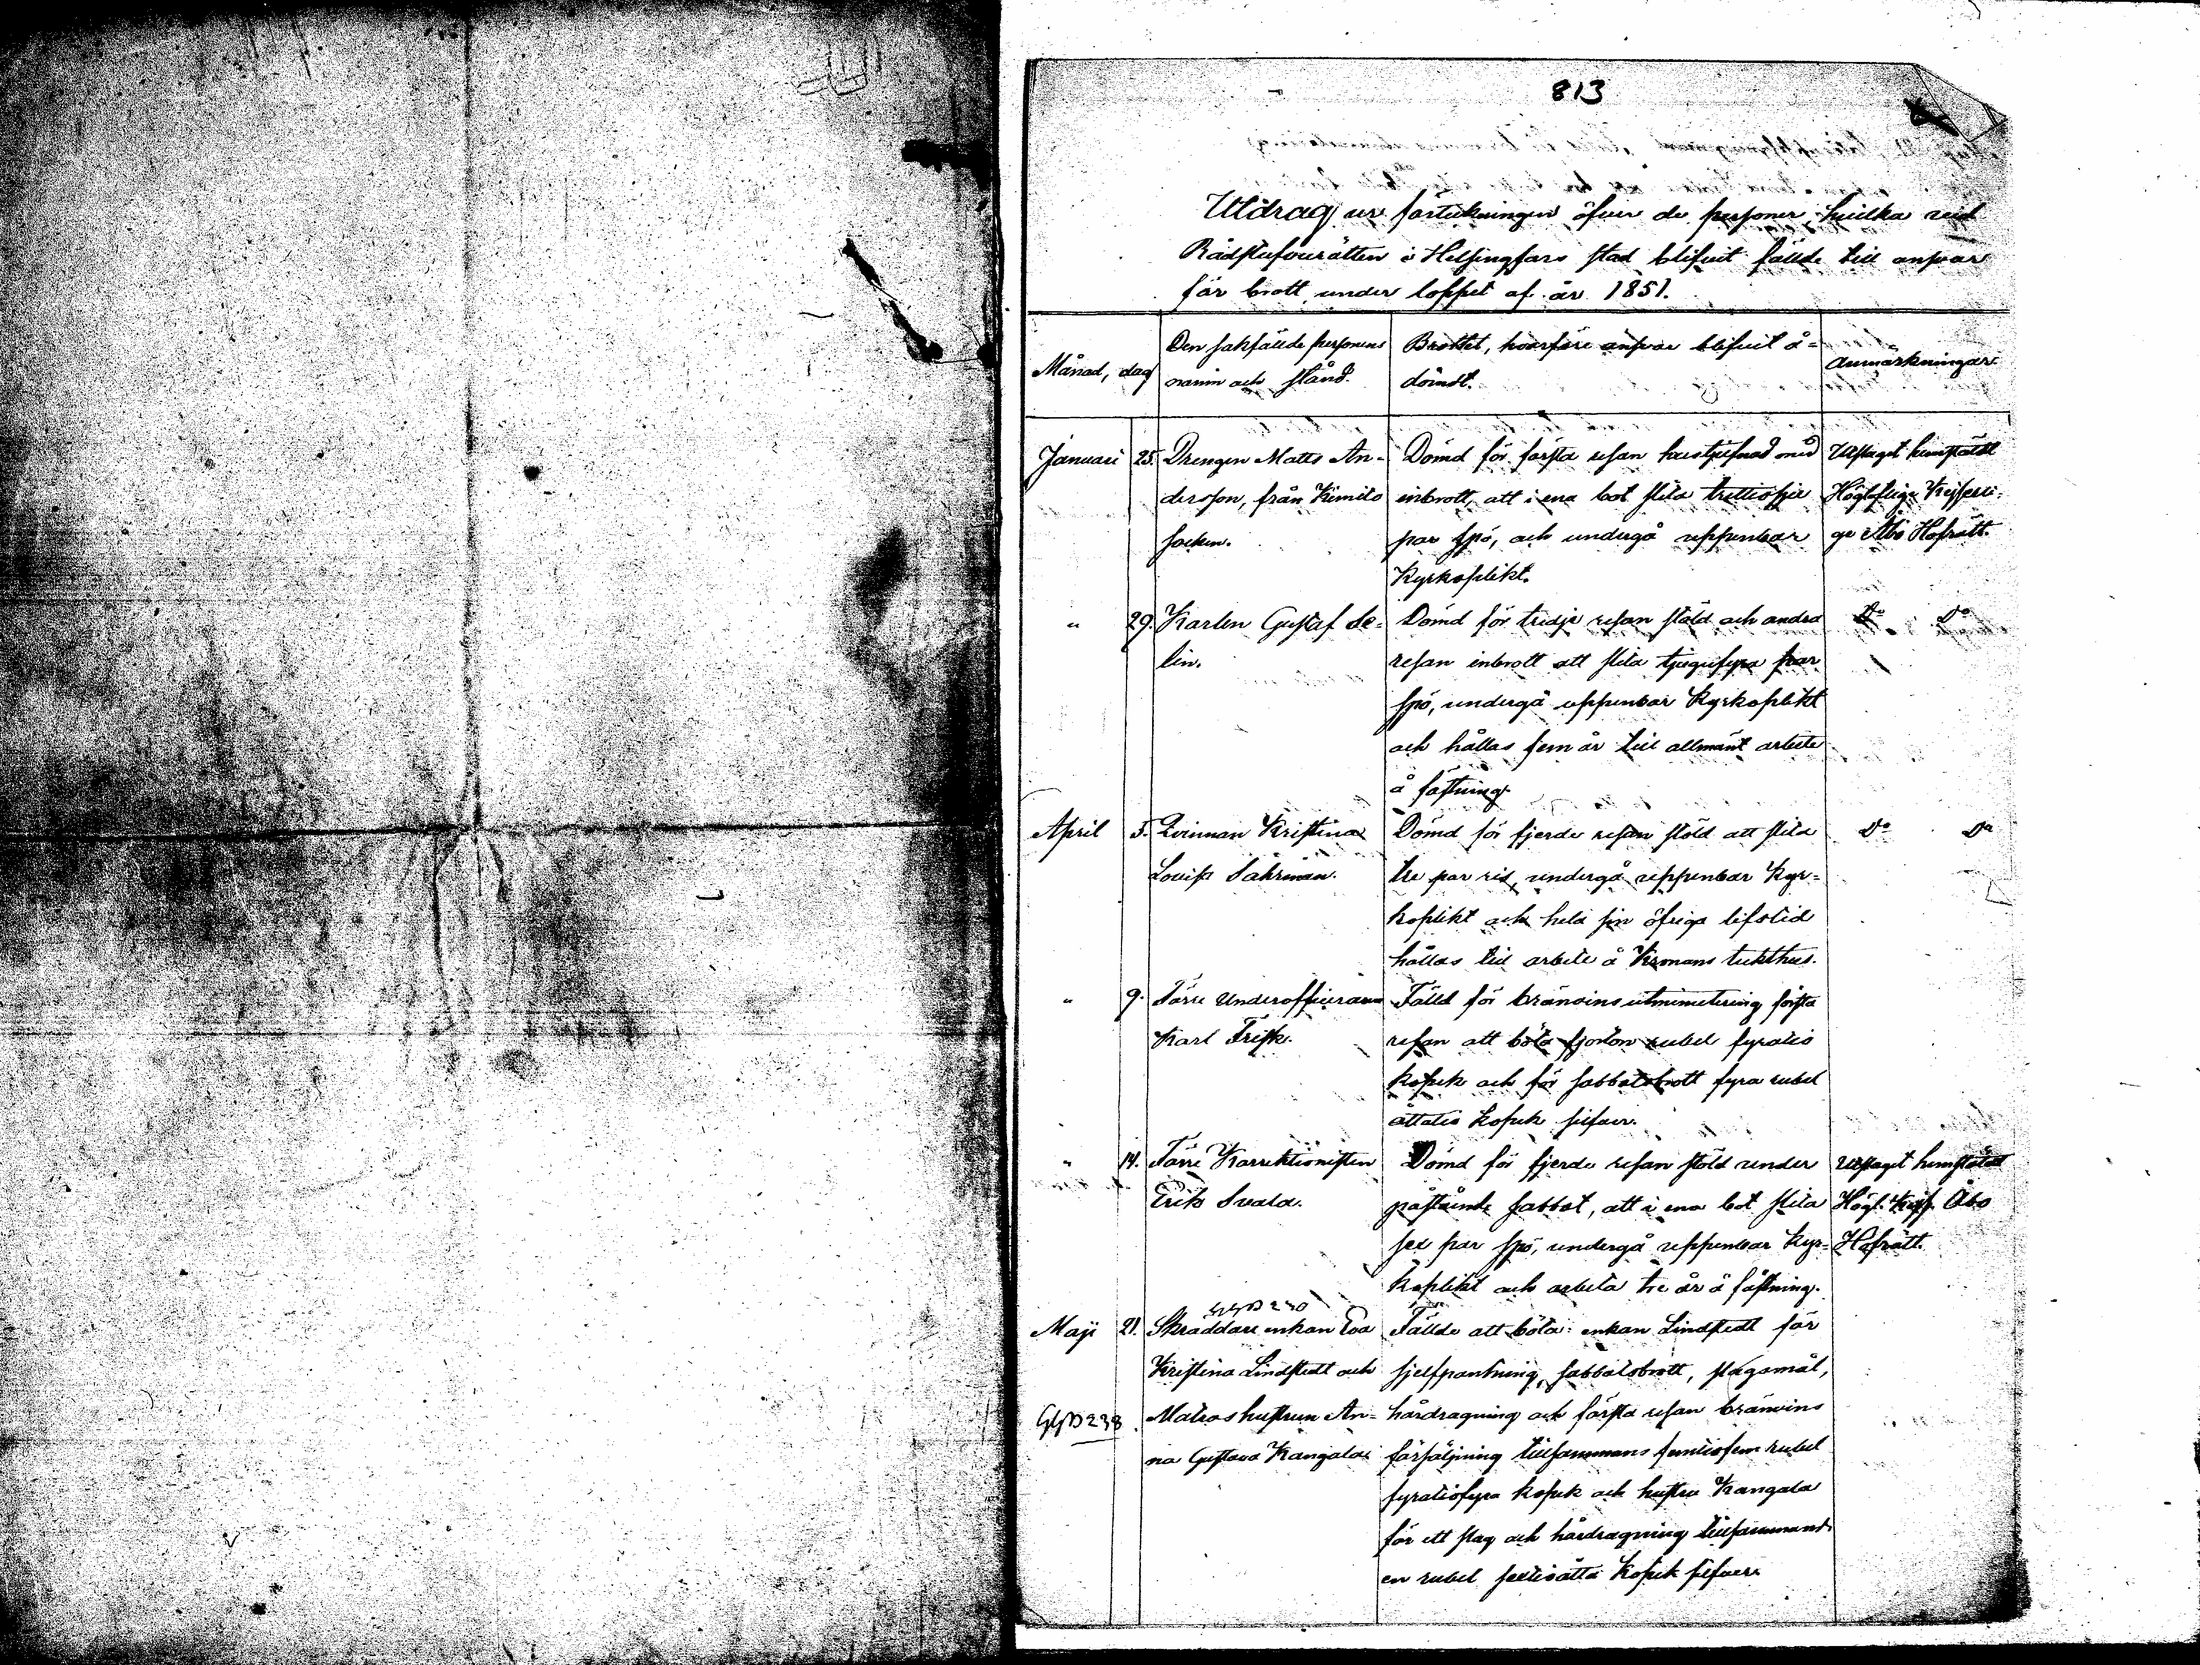 813
Utdrag ur förtekningen öfver de personer, hvilka vid
Rådstufvurätten i Helsingfors stad blifvit fällde till ansvar
för brott under loppet af år 1851.
Månad, dag
Den sakfällde personens
namn och stånd.
Brottet, hvarföre ansvar blifvit å-
dömdt.
Anmärkningar
Januari 25. Drengen Matts An-
dersson, från Kimito
socken.
Dömd för första resan hustjufnad med
inbrott, att i ena bot slita trettiosju
par spö, och undergå uppenbar
Kyrkoplikt.
Utslaget hemstäldt
Höglofliga Kejserli-
ga Åbo Hofrätt.
" 29. Karlen Gustaf Se-
lin.
Dömd för tridje resan stöld och andra
resan inbrott att slita tjugufyra par
spö, undergå uppenbar Kyrkoplikt
och hållas fem år till allmänt arbete
å fästning.
Do Do
April 5. Qvinnan Kristina
Lovisa Sahrman.
Dömd för fjerde resan stöld att slita
tre par ris, undergå uppenbar Kyr-
koplikt och hela sin öfriga lifstid
hållas till arbete å Kronans tukthus.
Do Do
" 9. Förre Underofficeraren
Karl Frisk.
Fälld för bränvins utminutering första
resan att böta fjorton rubel fyratio
kopek och för sabbatsbrott fyra rubel
åttatio kopek silfver.
" 14. Förre Korrektionisten
Erik Svala.
Dömd för fjerde resan stöld under
påstående sabbat, att i ena bot slita
sex par spö, undergå uppenbar Kyr-
koplikt och arbeta tre år å fästning.
Utslaget hemstäldt
Högl. Kejs. Åbo
Hofrätt.
Maji 21. Skräddare enkan Eva
Kristina Lindstedt och
Matros hustrun An-
na Gustava Kangala
Fällde att böta: enkan Lindstedt för
sjelfpantning, sabbatsbrott, slagsmål,
hårdragning och första resan bränvins
försäljning tillsammans femtiofem rubel
fyratiofyra kopek och hustru Kangala
för ett slag och hårdragning tillsammans
en rubel sextioåtta Kopek silfver.